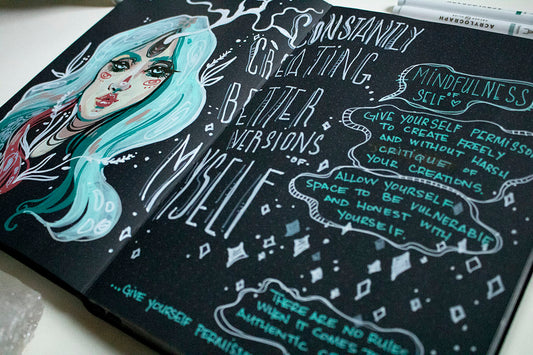 CONSTANTLY
CREATING
BETTER
VERSIONS
OF
MYSELF
MINDFULNESS
OF
SELF
GIVE YOURSELF PERMISSON
TO CREATE FREELY
AND WITHOUT HARSH
CRITIQUE OF
YOUR CREATIONS.
ALLOW YOURSELF
SPACE TO BE VULNERABLE
AND HONEST WITH
YOURSELF.
THERE ARE NO RULES
WHEN IT COMES
AUTHENTIC
...GIVE YOURSELF
ACRYLOGRAPH